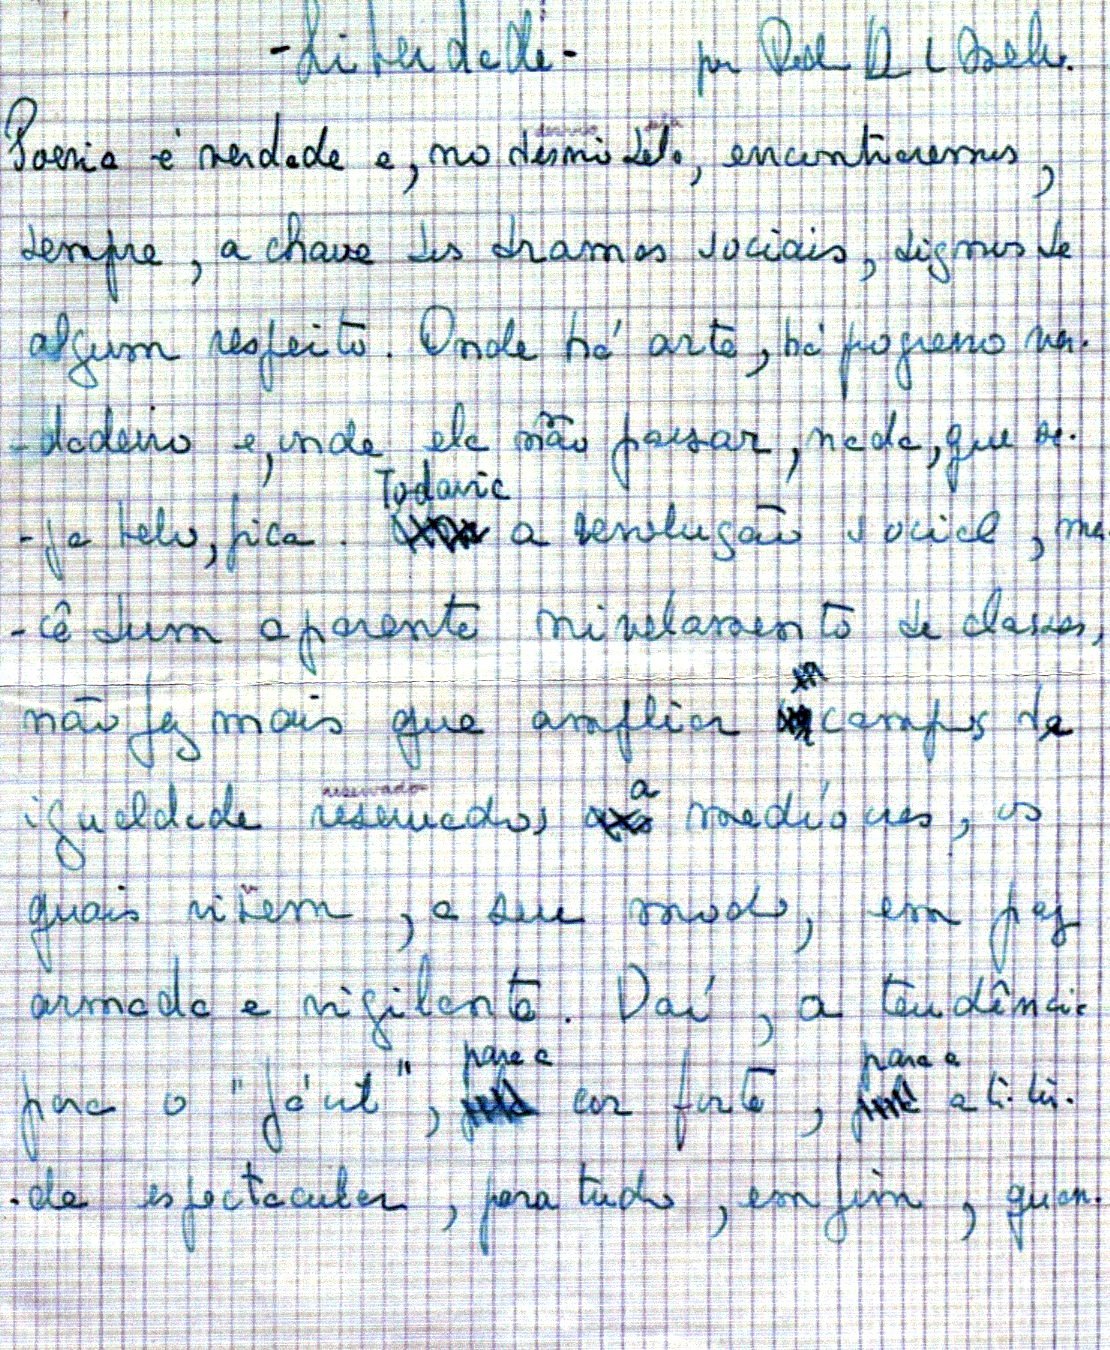 - Liberdade - por
Poesia é verdade e, no domínio dela, encontraremos,
sempre, a chave dos dramas sociais, dignos de
algum respeito. Onde há arte, há progresso ver-
-dadeiro e, onde ela não passar, nada, que se-
-ja belo, fica. Todavia a revolução social, mer-
-cê dum aparente nivelamento de classes,
não faz mais que ampliar campos de
igualdade reservados a medíocres, os
quais vivem, a seu modo, em paz
armada e vigilante. Daí, a tendência
para o "fácil", para a cor forte, para a atitu-
-de espectacular, para tudo, em fim, quan-